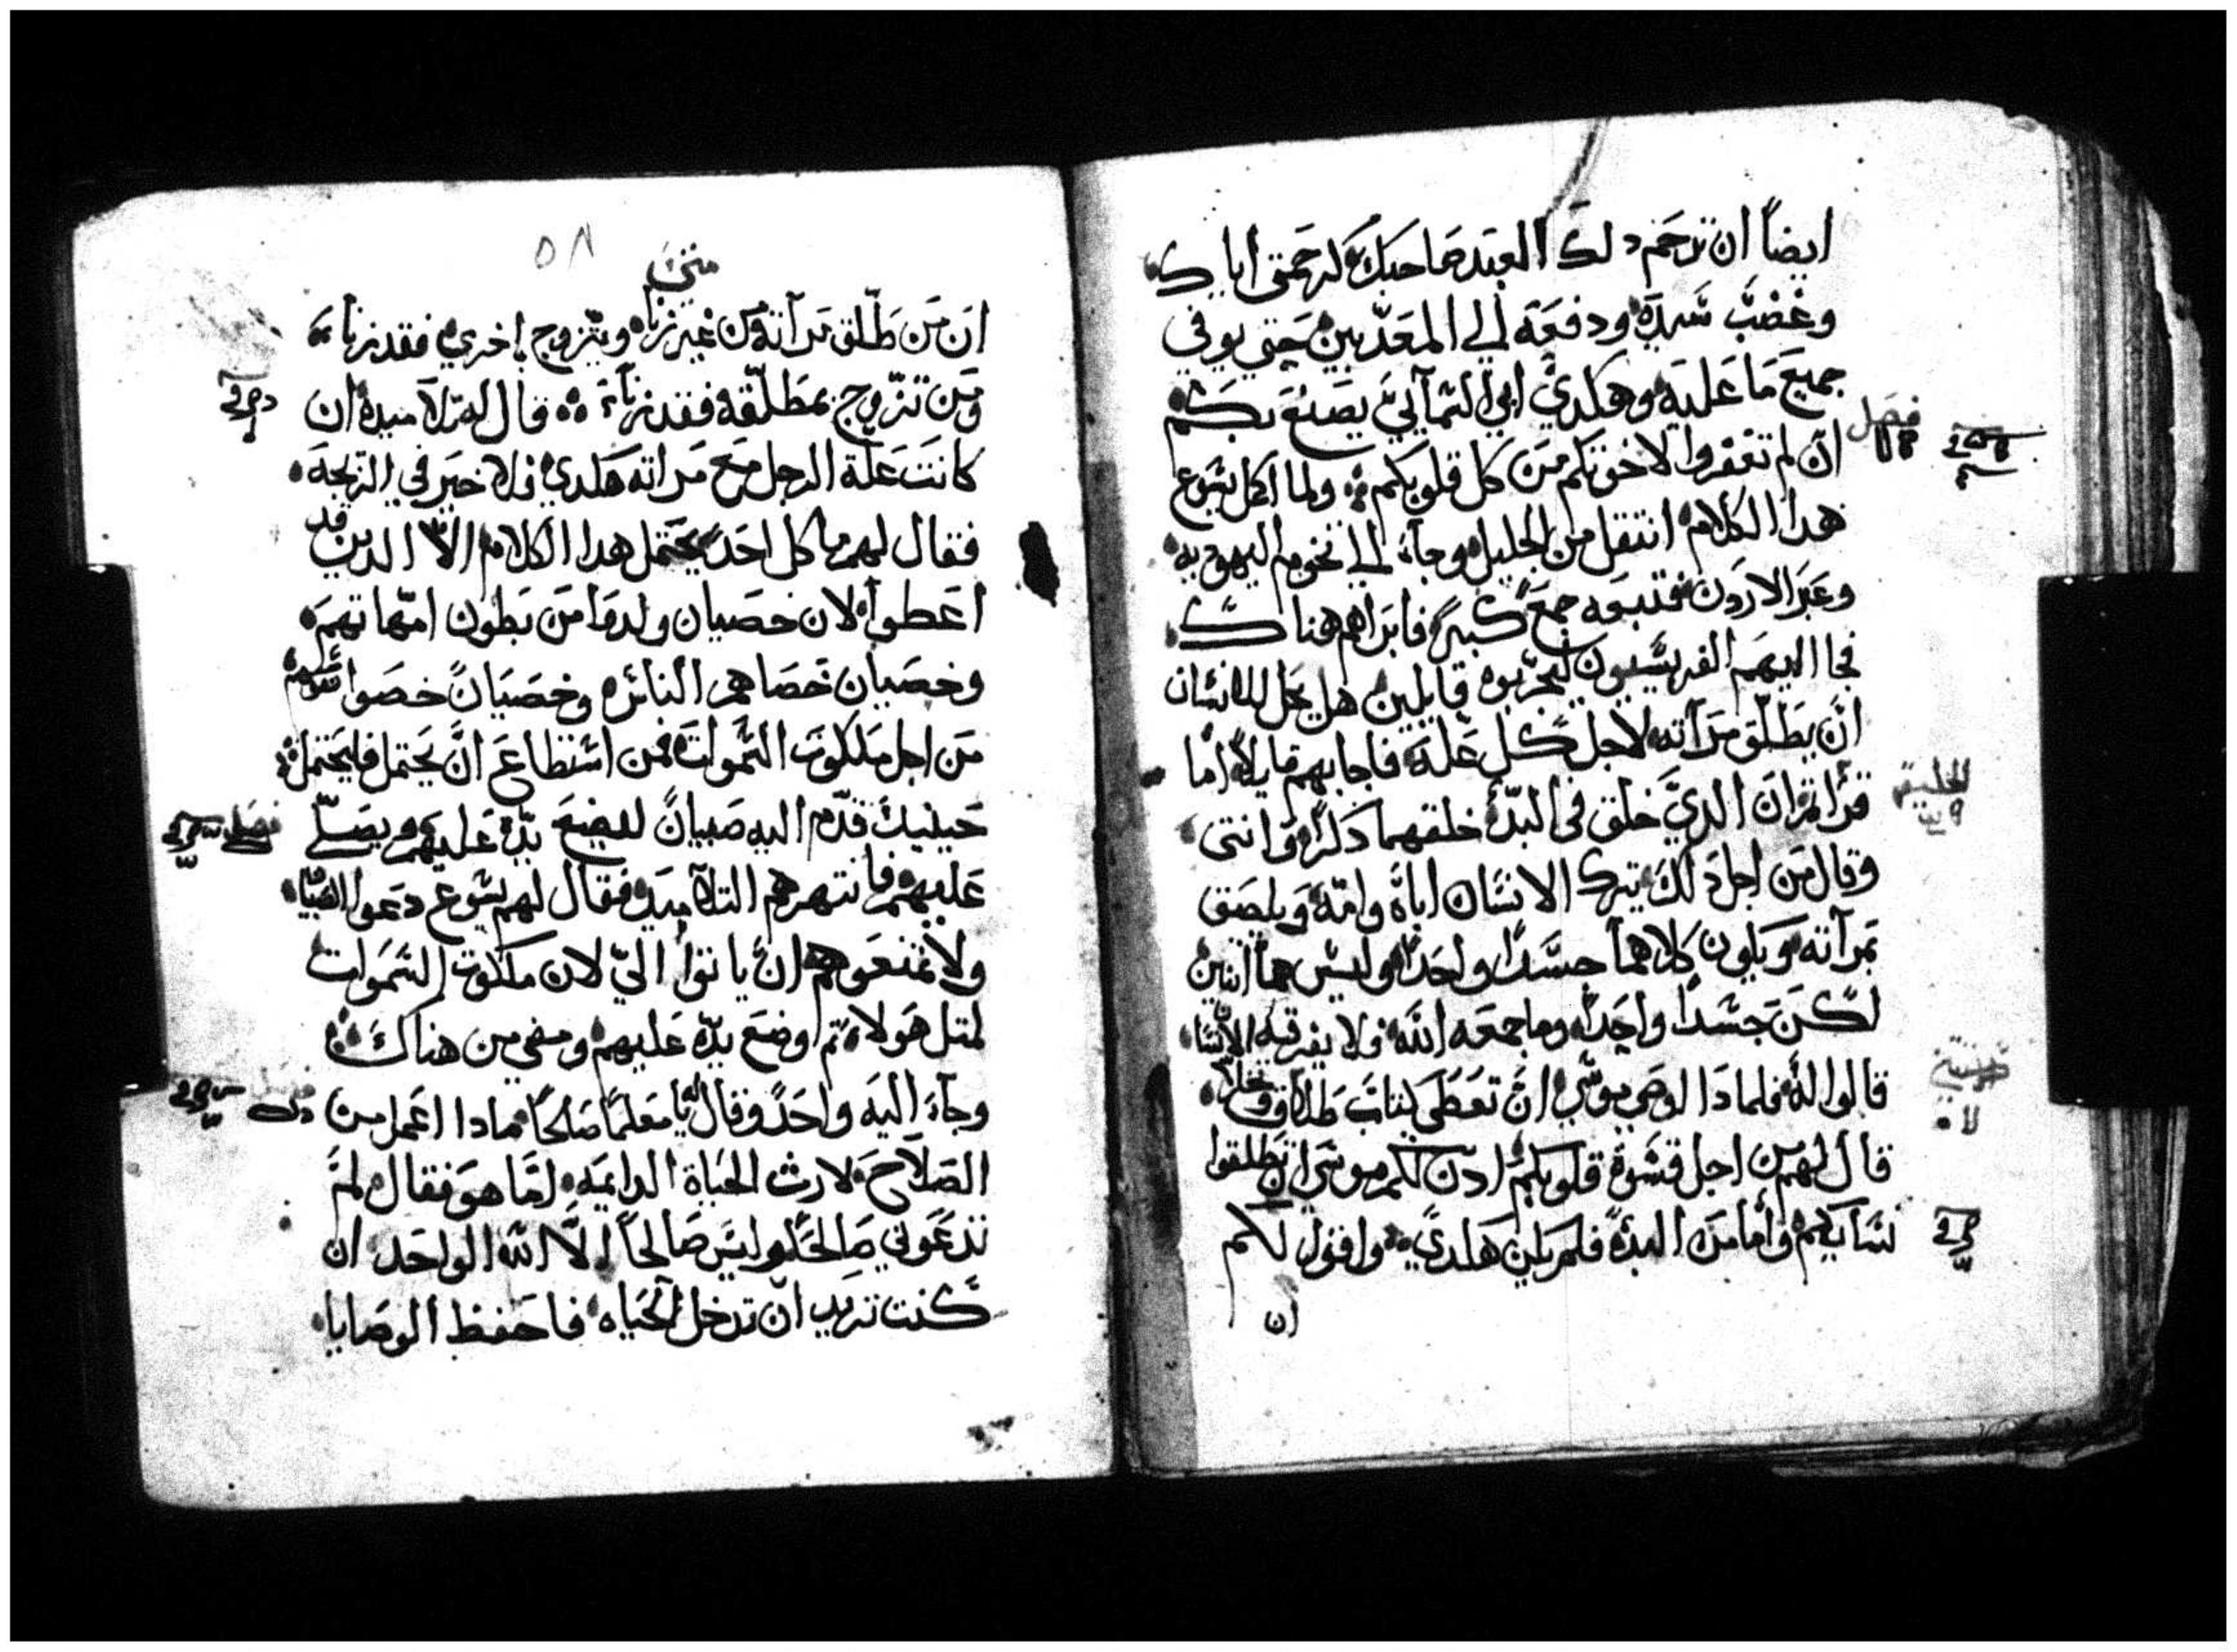 ايضاً ان ترحم دلك العبد صاحبك كرحمتي اياك
وغضب سيده ودفعه الي المعدبين حتي يوفي
جميع ما عليه وهكدي ابي السمآئي يصنع بكم
ان لم تغفروا لاخوتكم من كل قلوبكم ولما اكمل يسوع
هدا الكلام انتقل من الجليل وجآء الي تخوم اليهوديه
وعبر الاردن فتبعه جمع كبير فابراهم هناك
فجا اليهم الفريسيون ليجربوه قايلين هل يحل للانسان
ان يطلق مرآته لاجل كل علة فاجابهم قايلاً اما
قرأتم ان الدي خلق في البدء خلقهما دكراً وانتى
وقال من اجل دلك يترك الانسان اباه وامه ويلصق
بمرآته ويكون كلاهما جسداً واحداً وليس هما اتنين
لكن جسداً واحداً وما جمعه الله فلا يفرقه الانسان
قالوا له فلمادا اوصي موسي ان تعطى كتاب طلاق وتخلا
قال لهم من اجل قسوة قلوبكم ادن لكم موسى ان تطلقوا
نسايكم واما من البدء فلم يكن هكدي واقول لكم
ان
فصل
الخليقة
تتنية
٥٨
متي
ان من طلق مرآته من غير زناء ويتزوج باخري فقد زناء
ومن تزوج بمطلقه فقد زناء قال له تلاميده ان
كانت علة الرجل مع مراته هكدي فلا خير في الزيجة
فقال لهم ما كل احد يحتمل هدا الكلام الا الدين قد
اعطوا لان خصيان ولدوا من بطون امهاتهم
وخصيان خصاهم الناس وخصيان خصوا نفوسهم
من اجل ملكوت السموات فمن استطاع ان يحتمل فليحتمل
حينيد قدم اليه صبيان ليضع يده عليهم ويصلي
عليهم فانتهرهم التلاميد فقال لهم يسوع دعوا الصبيان
ولا تمنعوهم ان ياتوا الي لان ملكوت السموات
لمتل هولاء تم وضع يده عليهم ومضي من هناك
وجآء اليه واحد وقال يا معلما صالحا مادا اعمل من
الصلاح لارث الحياة الدايمه اما هو فقال لم
تدعوني صالحا وليس صالحا الا الله الواحد ان
كنت تريد ان تدخل الحياه فاحفظ الوصايا
فصل